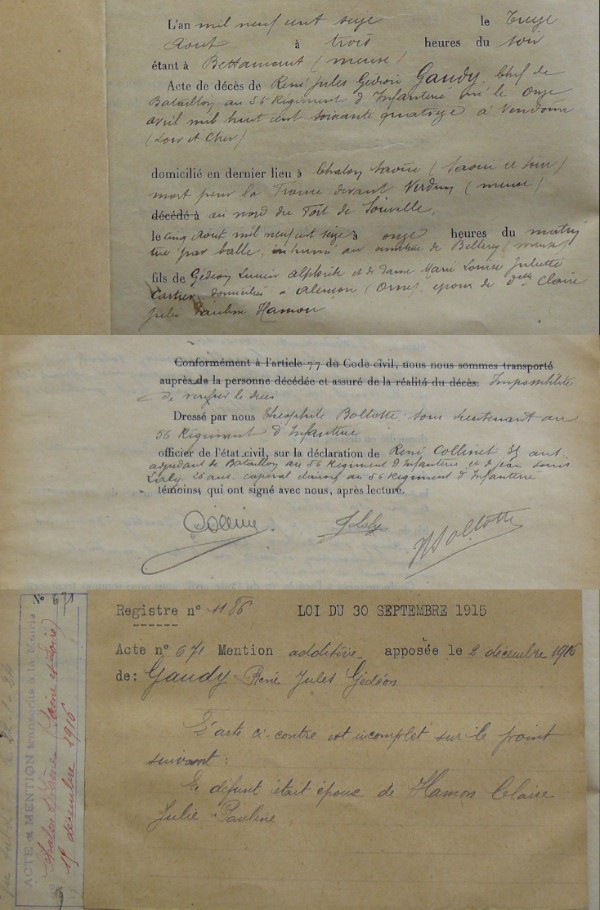 L'an mil neuf cent seize le Treize
Aout à trois heures du soir
étant à (meuse)
Acte de décès de René Jules Gédéon Gaudy, Chef de
Bataillon au 56 Regiment d'Infanterie né le Onze
avril mil huit cent soixante quatorze à Vendome
(Loir et Cher)
domicilié en dernier lieu à Chalon Saône (Saone et Loire)
mort pour la France devant Verdun (meuse)
décédé à au nord du Fort de Souville
le cinq Aout mil neuf cent seize à onze heures du matin
tué par balle, inhumé au cimetière de (meuse)
fils de Gédéon Lucien et de Dame Marie Louise Juliette
domiciliés à Alençon (Orne) époux de Claire
Julie Pauline Hamon
Conformément à l'article 77 du Code civil, nous nous sommes transporté
auprès de la personne décédée et assuré de la réalité du décès. Impossibilité
de vérifier le décès
Dressé par nous Théophile Bollotte sous lieutenant au
56 Régiment d'Infanterie
officier de l'état civil, sur la déclaration de René Collinet 35 ans
adjudant de Bataillon au 56 Régiment d'Infanterie et de Jean Louis
26 ans caporal au 56 Régiment d'Infanterie
témoins, qui ont signé avec nous, après lecture.
Bollotte
Registre n° 1186 LOI DU 30 SEPTEMBRE 1915
Acte n° 671 Mention additive apposée le 2 décembre 1916
de: Gaudy René Jules Gédéon
L'acte ci-contre est incomplet sur le point
suivant:
Le défunt était époux de Hamon Claire
Julie Pauline
N° 671
ACTE et MENTION transcrits à la Mairie
Chalon s/Saône (Saône et Loire)
décembre 1916